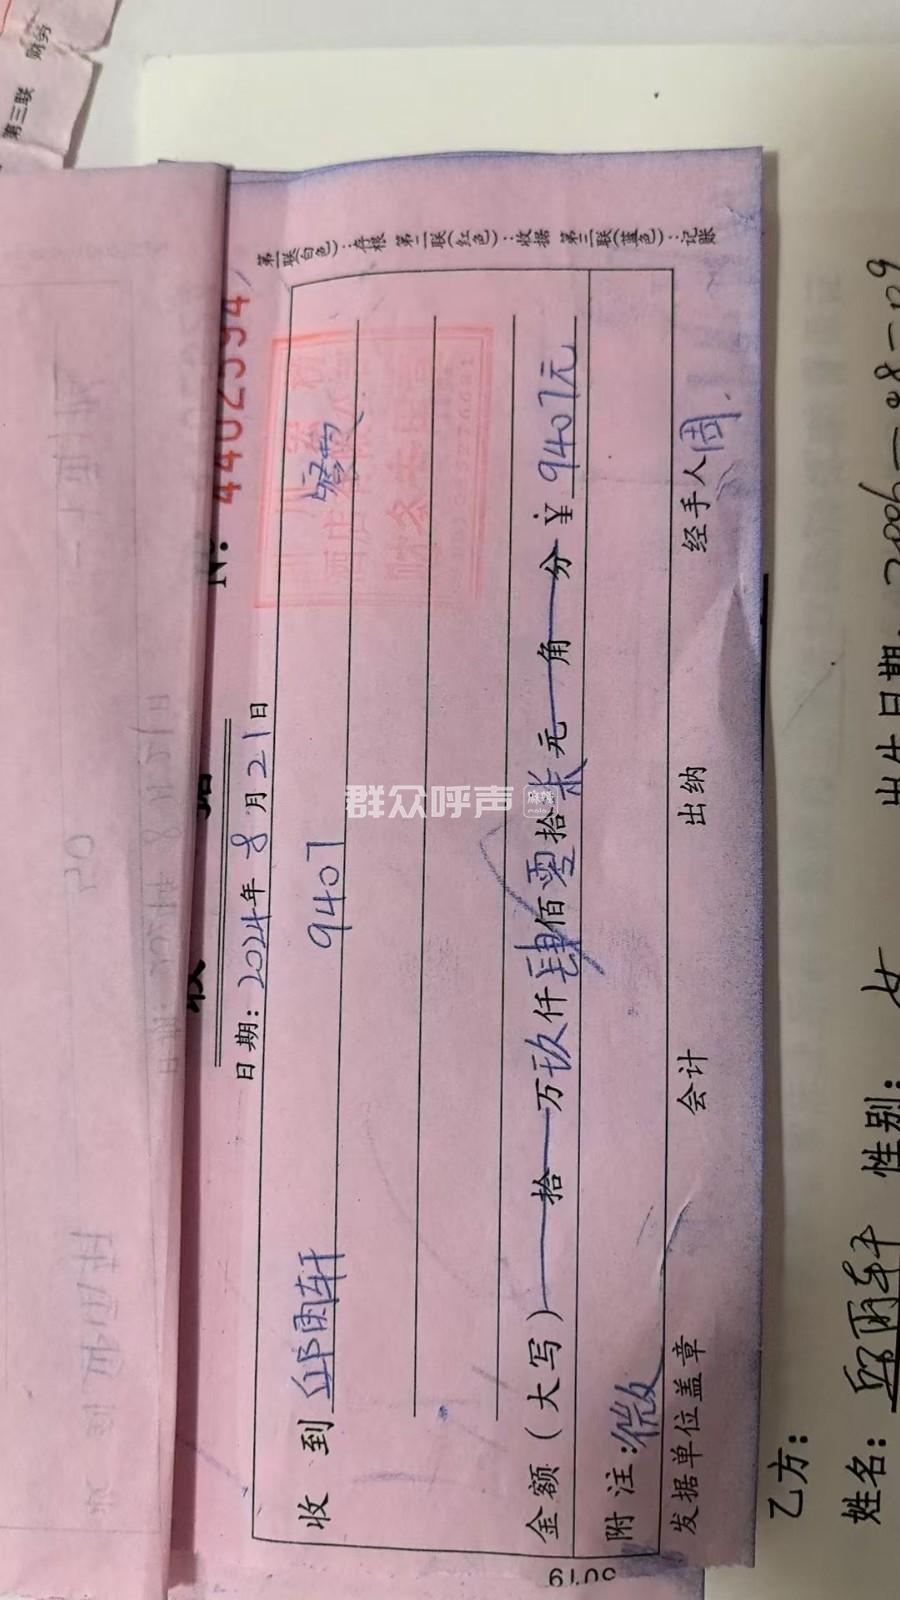 第三联 财务
收据
No. 4402594
日期：2024年8月21日
第一联(白色)：存根 第二联(红色)：收据 第三联(蓝色)：记账
收到 邱雨轩 9407
金额(大写) 拾 万 玖仟 肆佰 零拾 柒元 角 分 ¥ 9407元
附注：微
发据单位盖章 会计 出纳 经手人 周
群众呼声
乙方：
姓名：邱雨轩 性别：女 出生日期：